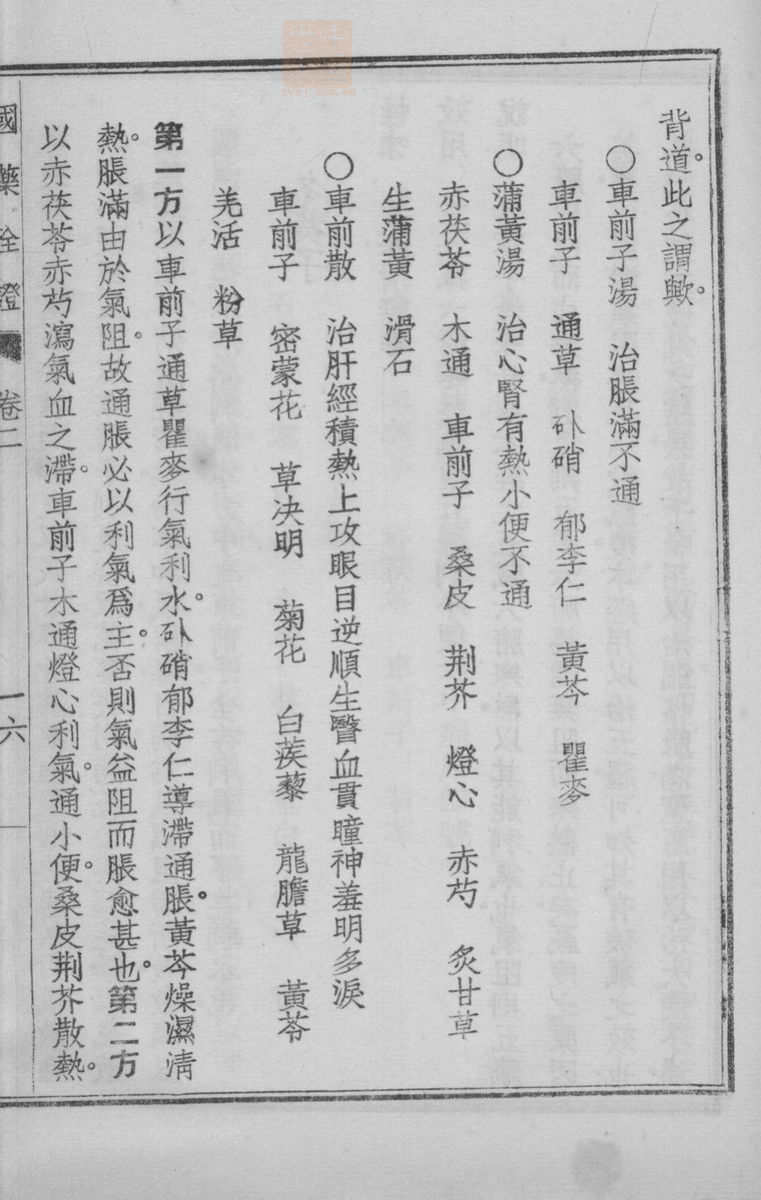 背道。此之謂歟。
〇車前子湯　治脹滿不通
車前子　通草　硭硝　郁李仁　黃芩　瞿麥
〇蒲黃湯　治心腎有熱小便不通
赤茯苓　木通　車前子　桑皮　荆芥　燈心　赤芍　炙甘草
生蒲黃　滑石
〇車前散　治肝經積熱上攻眼目逆順生瞖血貫瞳神羞明多淚
車前子　密蒙花　草决明　菊花　白蒺藜　龍膽草　黃芩
羌活　粉草
第一方以車前子通草瞿麥行氣利水。硭硝郁李仁導滯通脹。黃芩燥濕淸
熱。脹滿由於氣阻。故通脹必以利氣爲主。否則氣益阻而脹愈甚也。第二方
以赤茯苓赤芍瀉氣血之滯。車前子木通燈心利氣。通小便。桑皮荆芥散熱。
國藥詮證　卷二　一六